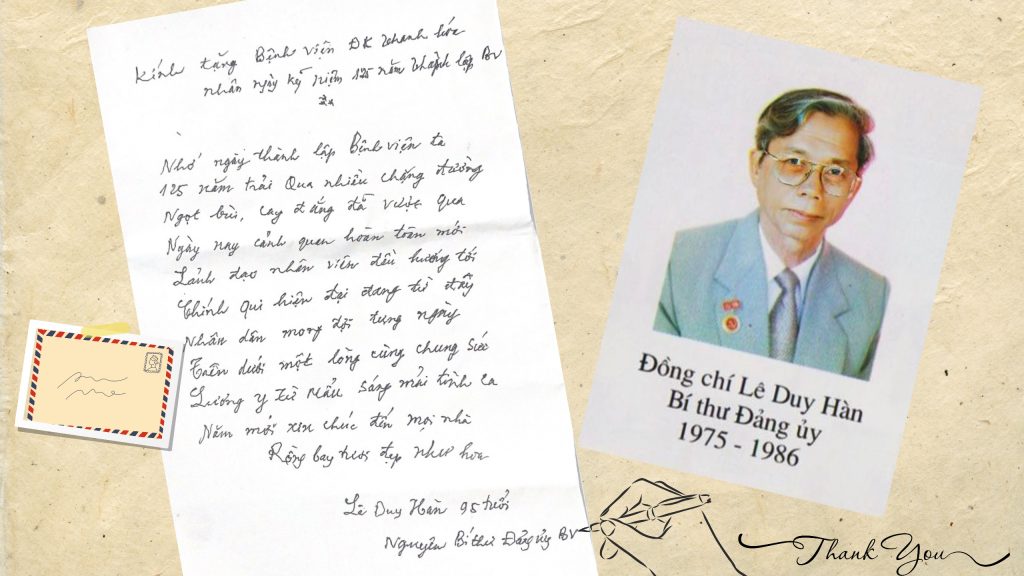 Kính tặng Bệnh viện ĐK Thanh hóa
nhân ngày kỷ niệm 125 năm thành lập BV
Nhớ ngày thành lập Bệnh viện ta
125 năm trải Qua nhiều chặng đường
Ngọt bùi, cay đắng đã vượt qua
Ngày nay cảnh quan hoàn toàn mới
Lãnh đạo nhân viên đều hướng tới
Chính qui hiện đại đang từ đây
Nhân dân mong đợi từng ngày
Trên dưới một lòng cùng chung sức
Lương y từ Mẫu sáng mãi tình ca
Năm mới xin chúc đến mọi nhà
Rồng bay tươi đẹp như hoa
Lê Duy Hàn 95 tuổi
Nguyên Bí thư Đảng ủy BV
Đồng chí Lê Duy Hàn
Bí thư Đảng ủy
1975 - 1986
Thank You